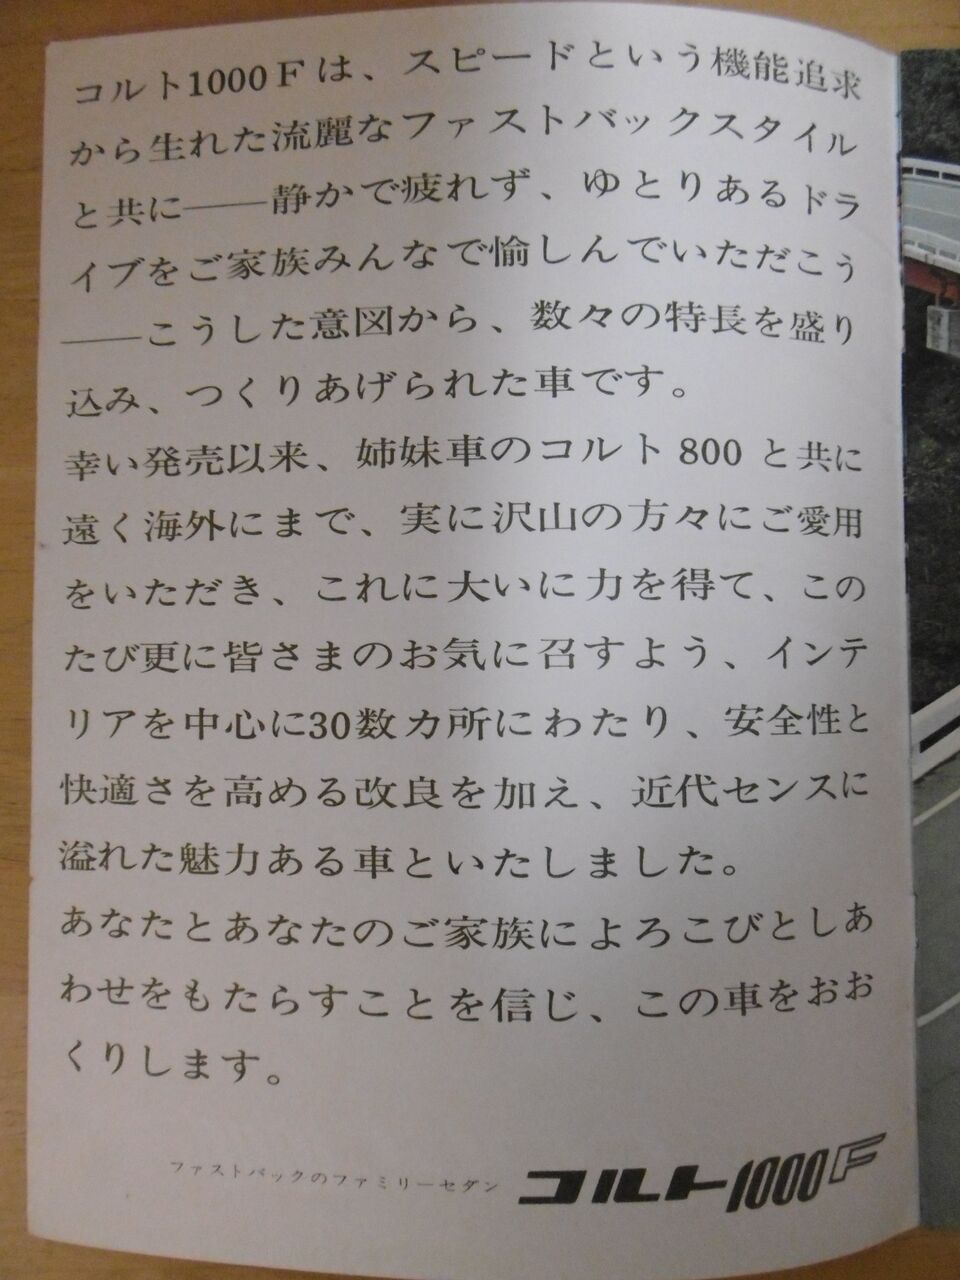 コルト1000Fは、スピードという機能追求
から生れた流麗なファストバックスタイル
と共に――静かで疲れず、ゆとりあるドラ
イブをご家族みんなで愉しんでいただこう
――こうした意図から、数々の特長を盛り
込み、つくりあげられた車です。
幸い発売以来、姉妹車のコルト800と共に
遠く海外にまで、実に沢山の方々にご愛用
をいただき、これに大いに力を得て、この
たび更に皆さまのお気に召すよう、インテ
リアを中心に30数カ所にわたり、安全性と
快適さを高める改良を加え、近代センスに
溢れた魅力ある車といたしました。
あなたとあなたのご家族によろこびとしあ
わせをもたらすことを信じ、この車をおお
くりします。
ファストバックのファミリーセダン コルト1000F